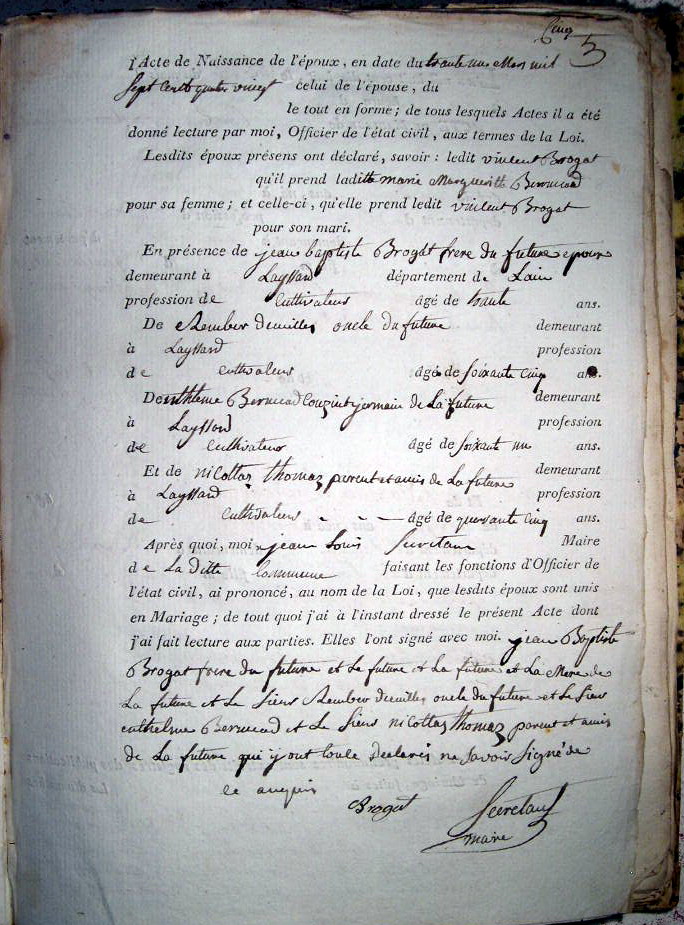 Cinq
5
l'Acte de Naissance de l'époux, en date du trante un Mars mil
Sept Cent quatre vingt celui de l'épouse, du
le tout en forme; de tous lesquels Actes il a été
donné lecture par moi, Officier de l'état civil, aux termes de la Loi.
Lesdits époux présens ont déclaré, savoir: ledit vincent Brogat
qu'il prend ladite marie Margueritte
pour sa femme; et celle-ci, qu'elle prend ledit vincent Brogat
pour son mari.
En présence de jean baptiste Brogat frere du future epoux
demeurant à Layssard département de Lain
profession de Cultivateur âgé de trante ans.
De oncle du future demeurant
à Layssard profession
de cultivateur âgé de soixante cinq ans.
De Couzint germain de La future demeurant
à Layssard profession
de Cultivateur âgé de soixante un ans.
Et de nicollas thomas parent et amis de La future demeurant
à Layssard profession
de Cultivateur âgé de quarante cinq ans.
Après quoi, moi jean Louis Secretant Maire
de La ditte Commune faisant les fonctions d'Officier de
l'état civil, ai prononcé, au nom de la Loi, que lesdits époux sont unis
en Mariage; de tout quoi j'ai à l'instant dressé le présent Acte dont
j'ai fait lecture aux parties. Elles l'ont signé avec moi. jean Baptiste
Brogat frere du future et Le future et La future et La Mere de
La future et Le Sieur oncle du future et Le Sieur
et Le Sieur nicollas thomas parent et amis
de La future qui ont declarés ne savoir signé de
ce
Brogat
Secretant
maire